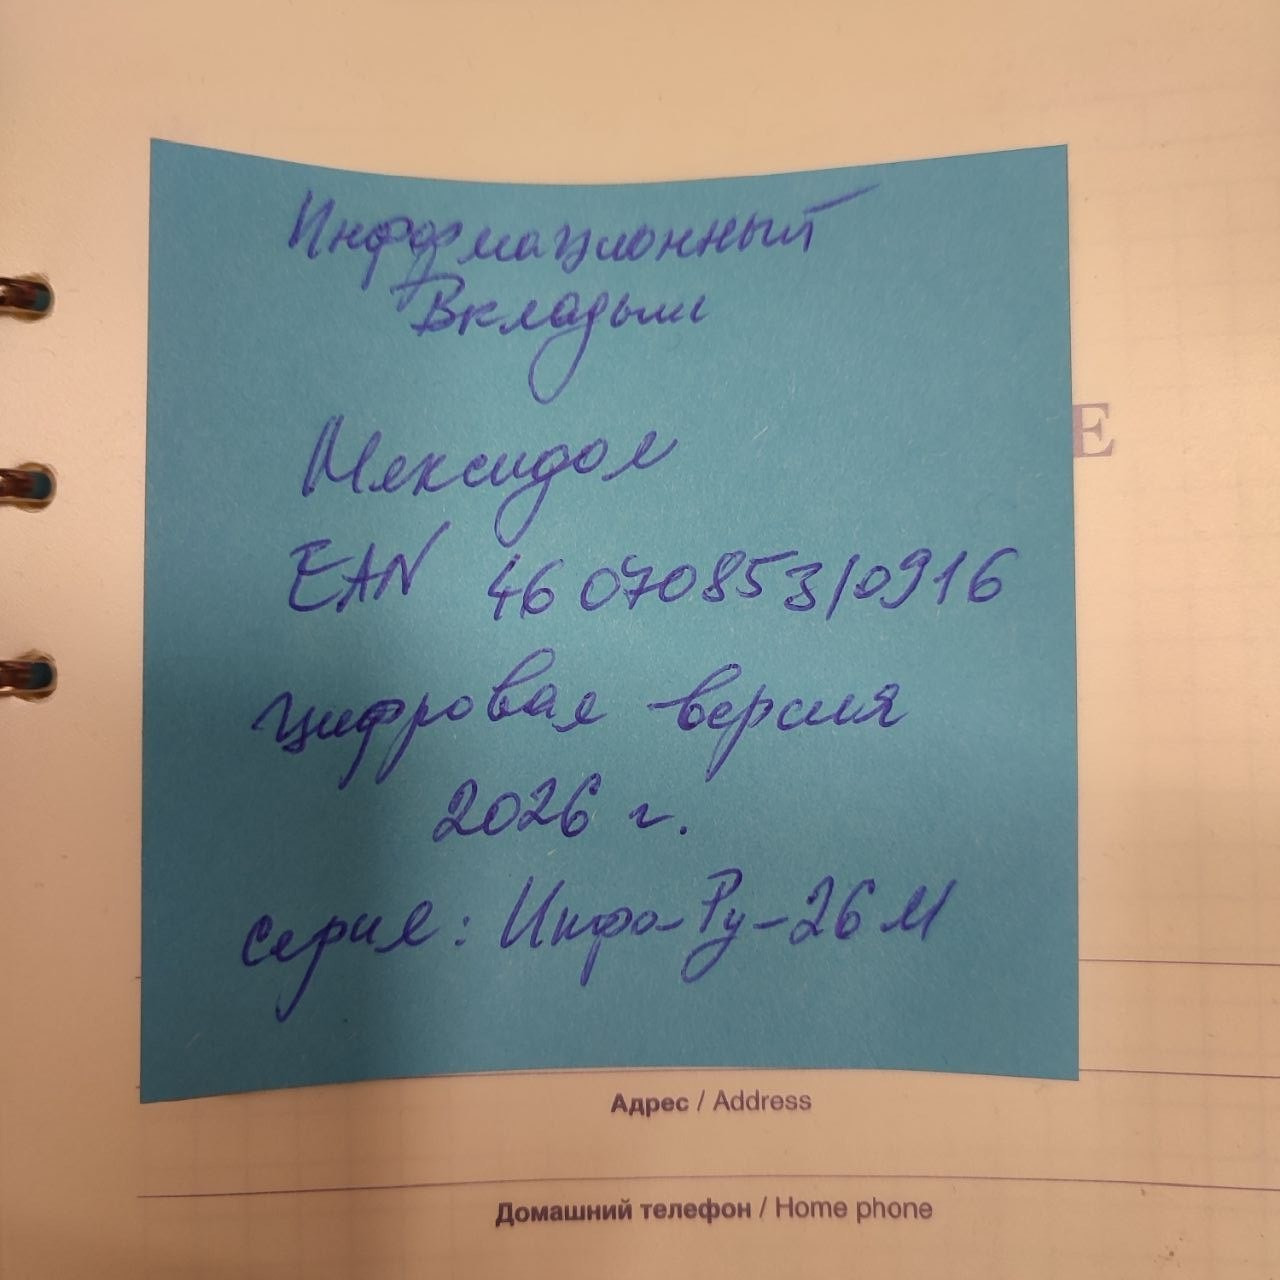 Информационный
Вкладыш
Мексидол
EAN 4607085310916
цифровая версия
2026 г.
серия: Инфо-Ру-26М
E
Адрес / Address
Домашний телефон / Home phone